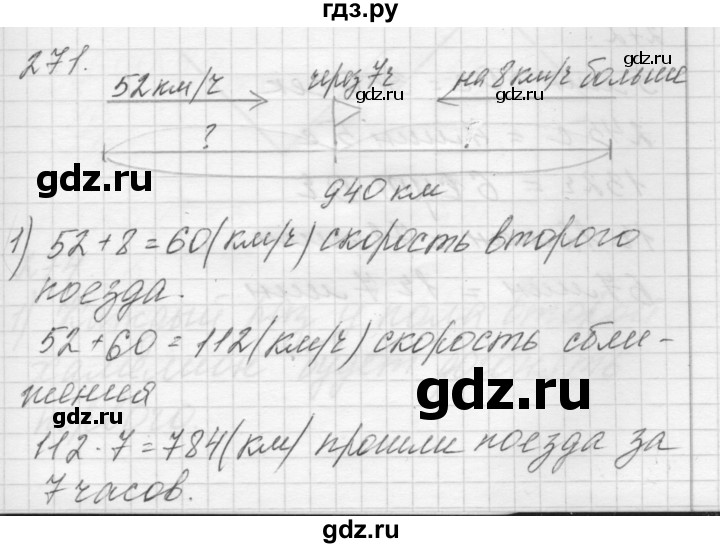 гдз.ру
271.
52км/ч через 7ч на 8км/ч больше
gdz.ru gdz.ru gdz.ru
? ?
gdz.ru gdz.ru
940 км
1) 52+8=60(км/ч) скорость второго
поезда.
52+60=112(км/ч) скорость сбли-
жения
gdz.ru
112·7=784(км) прошли поезда за
7 часов.
gdz.ru
gdz.ru